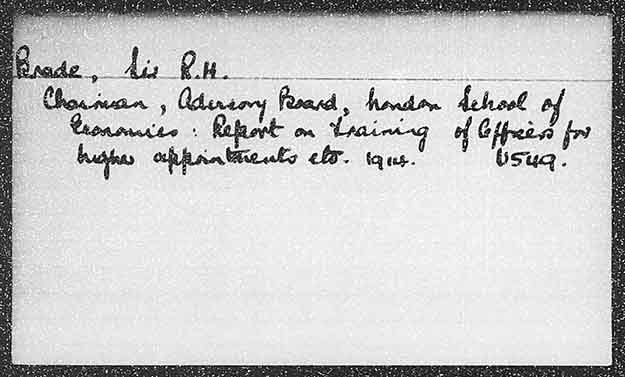 Brade, Sir R.H.
Chairman, Advisory Board, London School of
Economics: Report on Training of Officers for
higher appointments etc. 1914. U549.